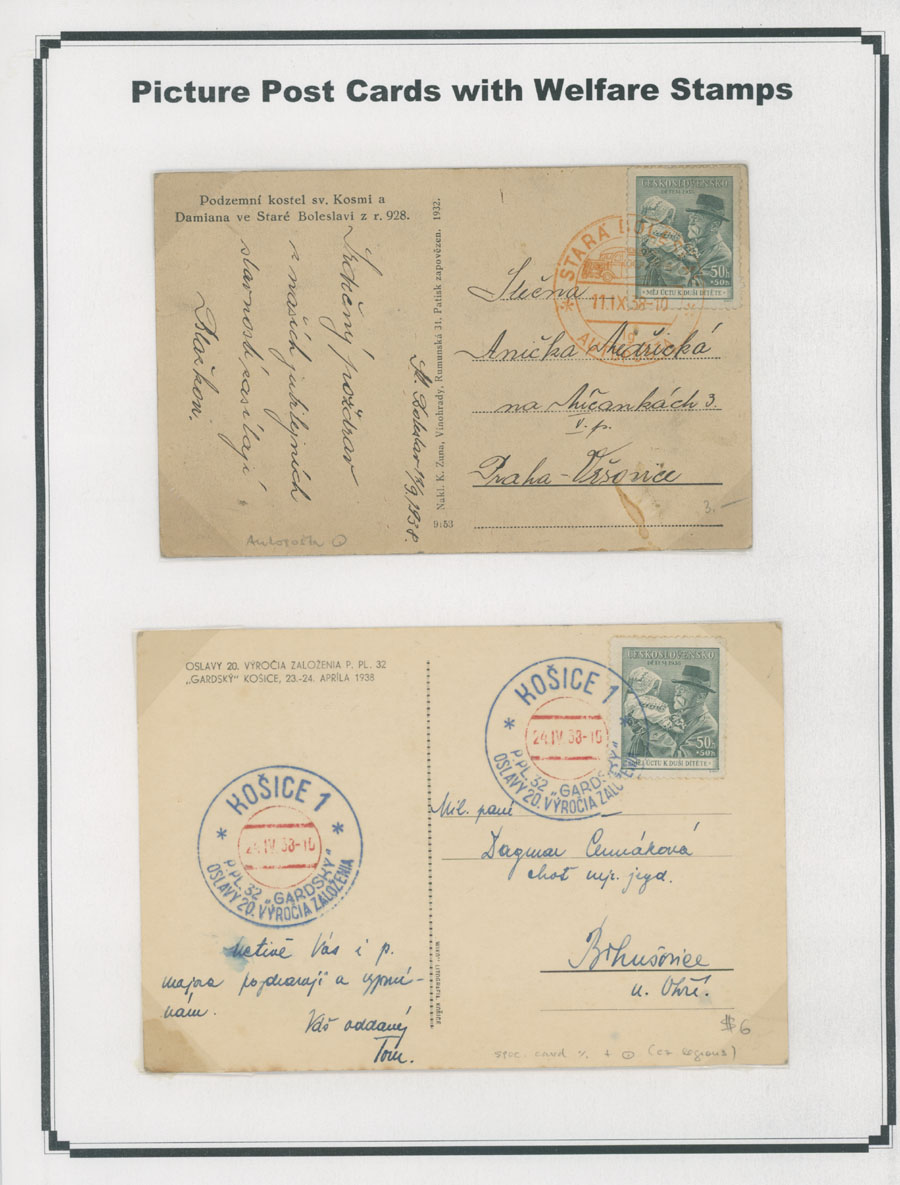 Picture Post Cards with Welfare Stamps
Podzemní kostel sv. Kosmi a
Damiana ve Staré Boleslavi z r. 928.
Srdečný pozdrav
z našich jubilejních
slavností zasílají
Blažkovi.
St. Boleslav 1938.
Nakl. K. Zuna, Vinohrady, Rumunská 31. Patisk zapovězen. 1932.
9153
ČESKOSLOVENSKO
DĚTEM 1938
50h
+50h
MĚJ ÚCTU K DUŠI DÍTĚTE
STARÁ BOLESLAV
11.IX.38-10
9
Slečna
Anička
na Mičankách 3.
Praha-Vršovice
3.-
Autopošta
OSLAVY 20. VÝROČIA ZALOŽENIA P. PL. 32
„GARDSKÝ" KOŠICE, 23.-24. APRÍLA 1938
KOŠICE 1
24.IV.38-16
P. PL. 32 „GARDSKÝ"
OSLAVY 20. VÝROČIA ZALOŽENIA
ČESKOSLOVENSKO
DĚTEM 1938
50h
+50h
MĚJ ÚCTU K DUŠI DÍTĚTE
KOŠICE 1
24.IV.38-16
P. PL. 32 „GARDSKÝ"
OSLAVY 20. VÝROČIA ZALOŽENIA
Mil. paní
Dagmar
choť
Bohušovice
n. Ohří.
Uctivě Vás i p.
majora pozdravují a
Váš oddaný
Tom.
$6
spec. card % + (cz legions)